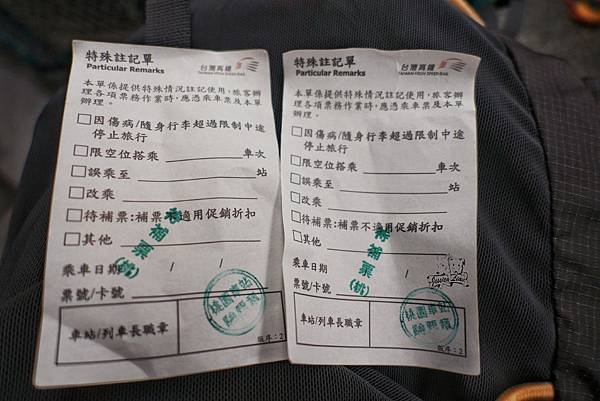 特殊註記單
Particular Remarks
台灣高鐵
TAIWAN HIGH SPEED RAIL
本單係提供特殊情況註記使用,旅客辦
理各項票務作業時,應憑乘車票及本單
辦理。
□因傷病/隨身行李超過限制中途
停止旅行
□限空位搭乘 車次
□誤乘至 站
□改乘
□待補票:補票不適用促銷折扣
□其他
乘車日期 / /
票號/卡號
車站/列車長職章
版序:2
待補票(桃)
桃園車站
特殊註記單
Particular Remarks
台灣高鐵
TAIWAN HIGH SPEED RAIL
本單係提供特殊情況註記使用,旅客辦
理各項票務作業時,應憑乘車票及本單
辦理。
□因傷病/隨身行李超過限制中途
停止旅行
□限空位搭乘 車次
□誤乘至 站
□改乘
□待補票:補票不適用促銷折扣
□其他
乘車日期 /
票號/卡號
車站/列車長職章
版序:2
待補票(桃)
桃園車站